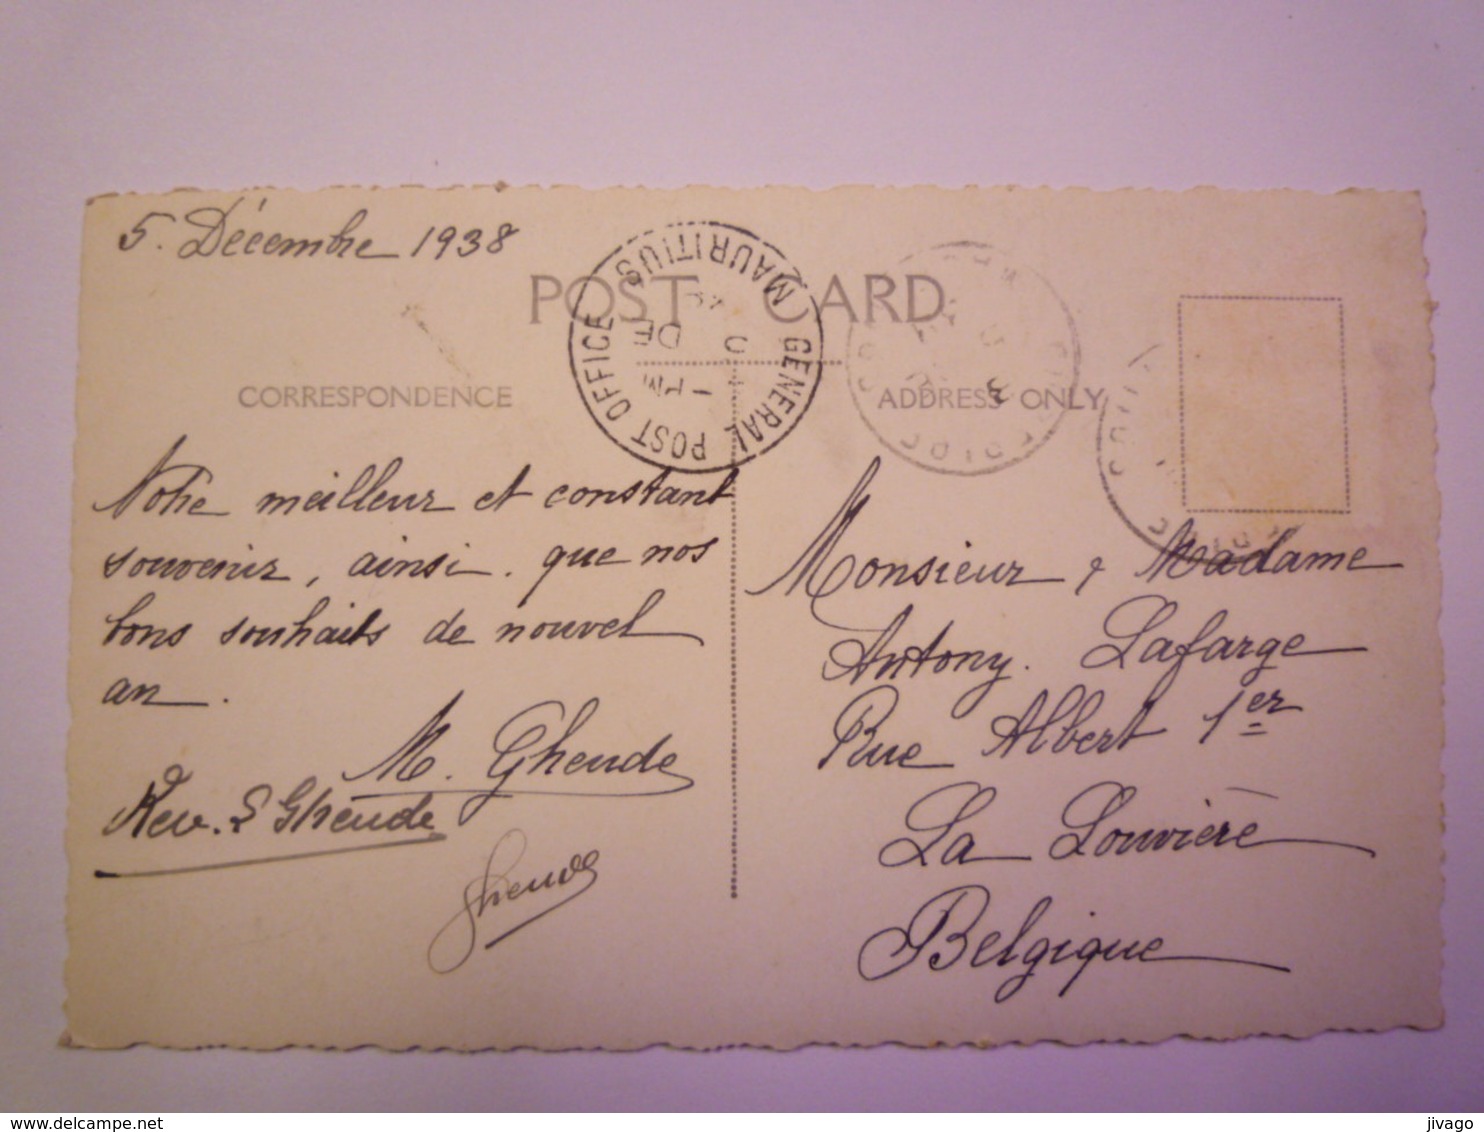 5. Décembre 1938
POST CARD
GENERAL POST OFFICE MAURITIUS
PM
DE
CORRESPONDENCE
ADDRESS ONLY
Notre meilleur et constant
souvenir, ainsi que nos
bons souhaits de nouvel
an.
M. Gheude
Rev. S Gheude
Gheude
Monsieur & Madame
Antony. Lafarge
Rue Albert 1er
La Louvière
Belgique
www.delcampe.net
jivago